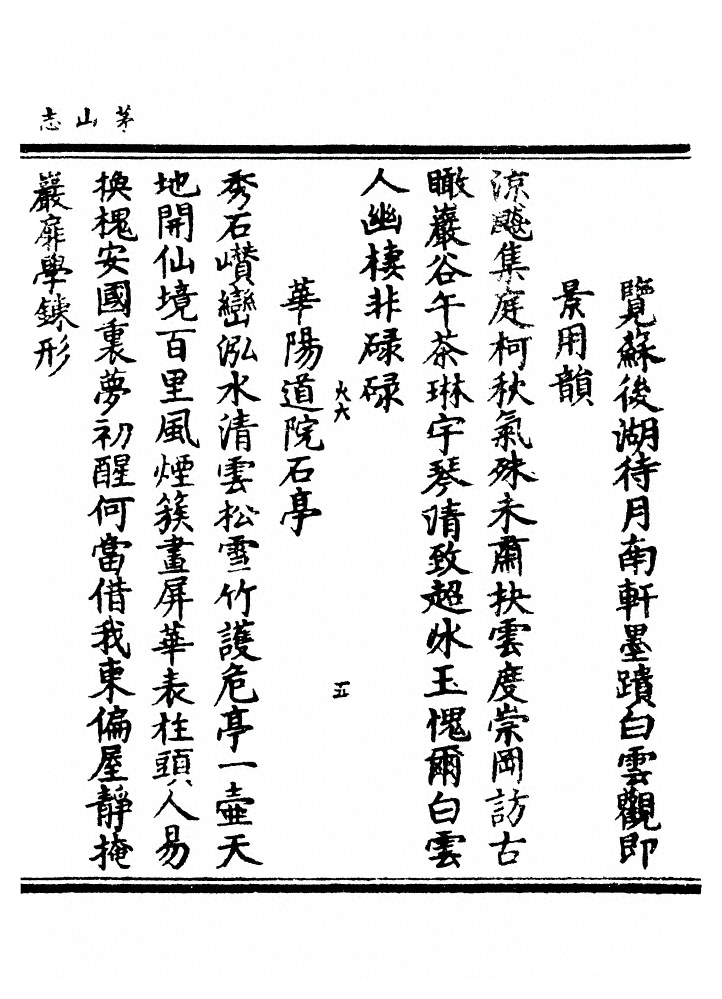 茅山志
覽蘇後湖待月南軒墨蹟白雲觀即
景用韻
涼飈集庭柯秋氣殊未肅抉雲度崇岡訪古
瞰巖谷午茶琳宇琴清致超冰玉愧爾白雲
人幽棲非碌碌
火六
五
華陽道院石亭
秀石巑巒泓水清雲松雪竹護危亭一壺天
地開仙境百里風煙簇畫屏華表柱頭人易
換槐安國裏夢初醒何當借我東偏屋靜掩
巖扉學鍊形